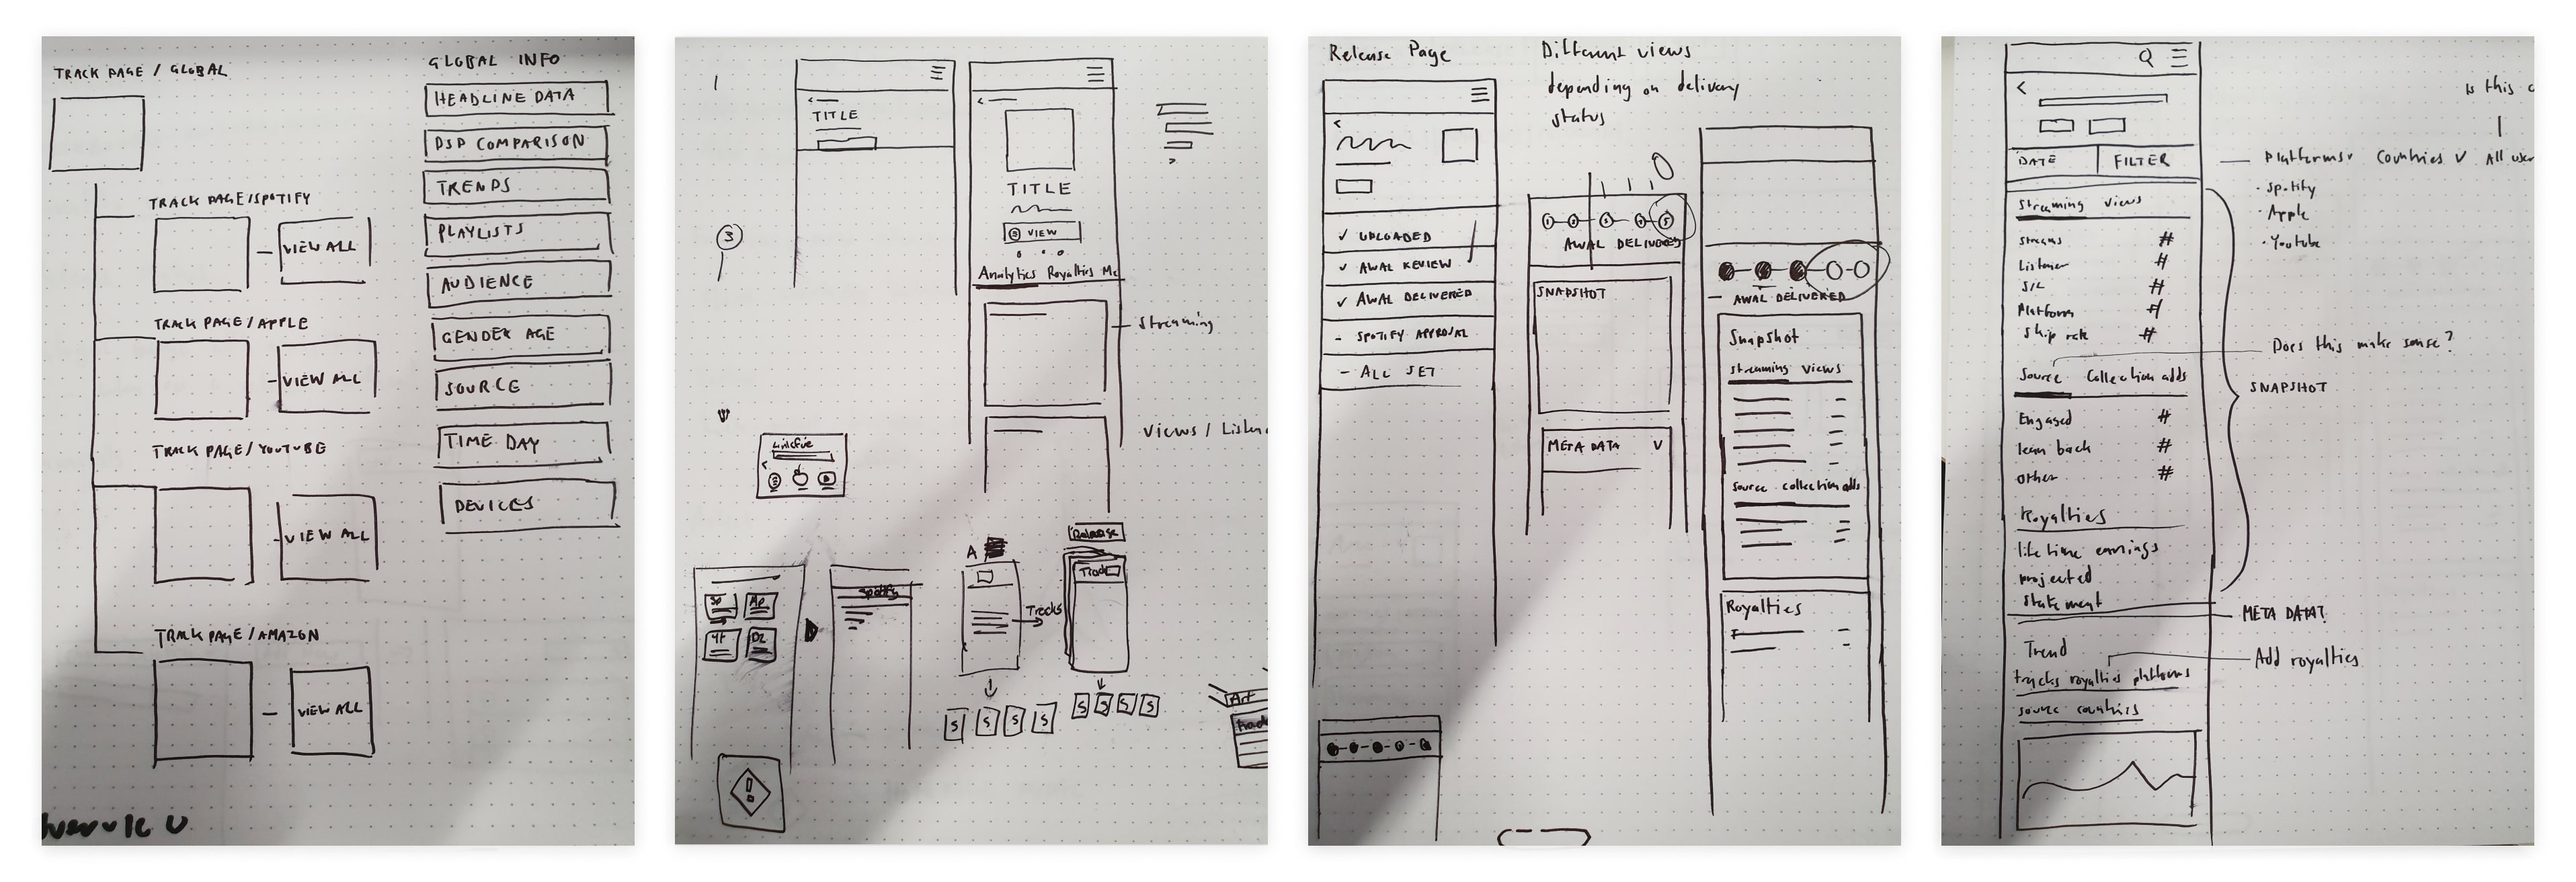 TRACK PAGE / GLOBAL
TRACK PAGE/SPOTIFY
VIEW ALL
TRACK PAGE/APPLE
VIEW ALL
TRACK PAGE/YOUTUBE
VIEW ALL
TRACK PAGE/AMAZON
VIEW ALL
GLOBAL INFO
HEADLINE DATA
DSP COMPARISON
TRENDS
PLAYLISTS
AUDIENCE
GENDER AGE
SOURCE
TIME DAY
DEVICES
TITLE
3
TITLE
VIEW
Analytics Royalties Me
Streaming
Views / Listen
Linkfire
Sp
Ap
YT
DZ
Spotify
A
Tracks
Release
Track
S S S S
S S S S
Art
Track
!
Release Page
UPLOADED
AWAL REVIEW
AWAL DELIVERED
SPOTIFY APPROVAL
ALL SET
Different views
depending on delivery
status
1 2 3 4 5
AWAL DELIVERED
SNAPSHOT
META DATA
AWAL DELIVERED
Snapshot
Streaming views
Source collection adds
Royalties
DATE
FILTER
Streaming views
Streams #
Listener #
S/L #
Platform #
Skip rate #
Source Collection adds
Engaged #
lean back #
other #
Royalties
life time earnings
projected
statement
Trend
tracks royalties platforms
source countries
Is this
Platforms Countries All user
Spotify
Apple
Youtube
Does this make sense?
SNAPSHOT
META DATA?
Add royalties